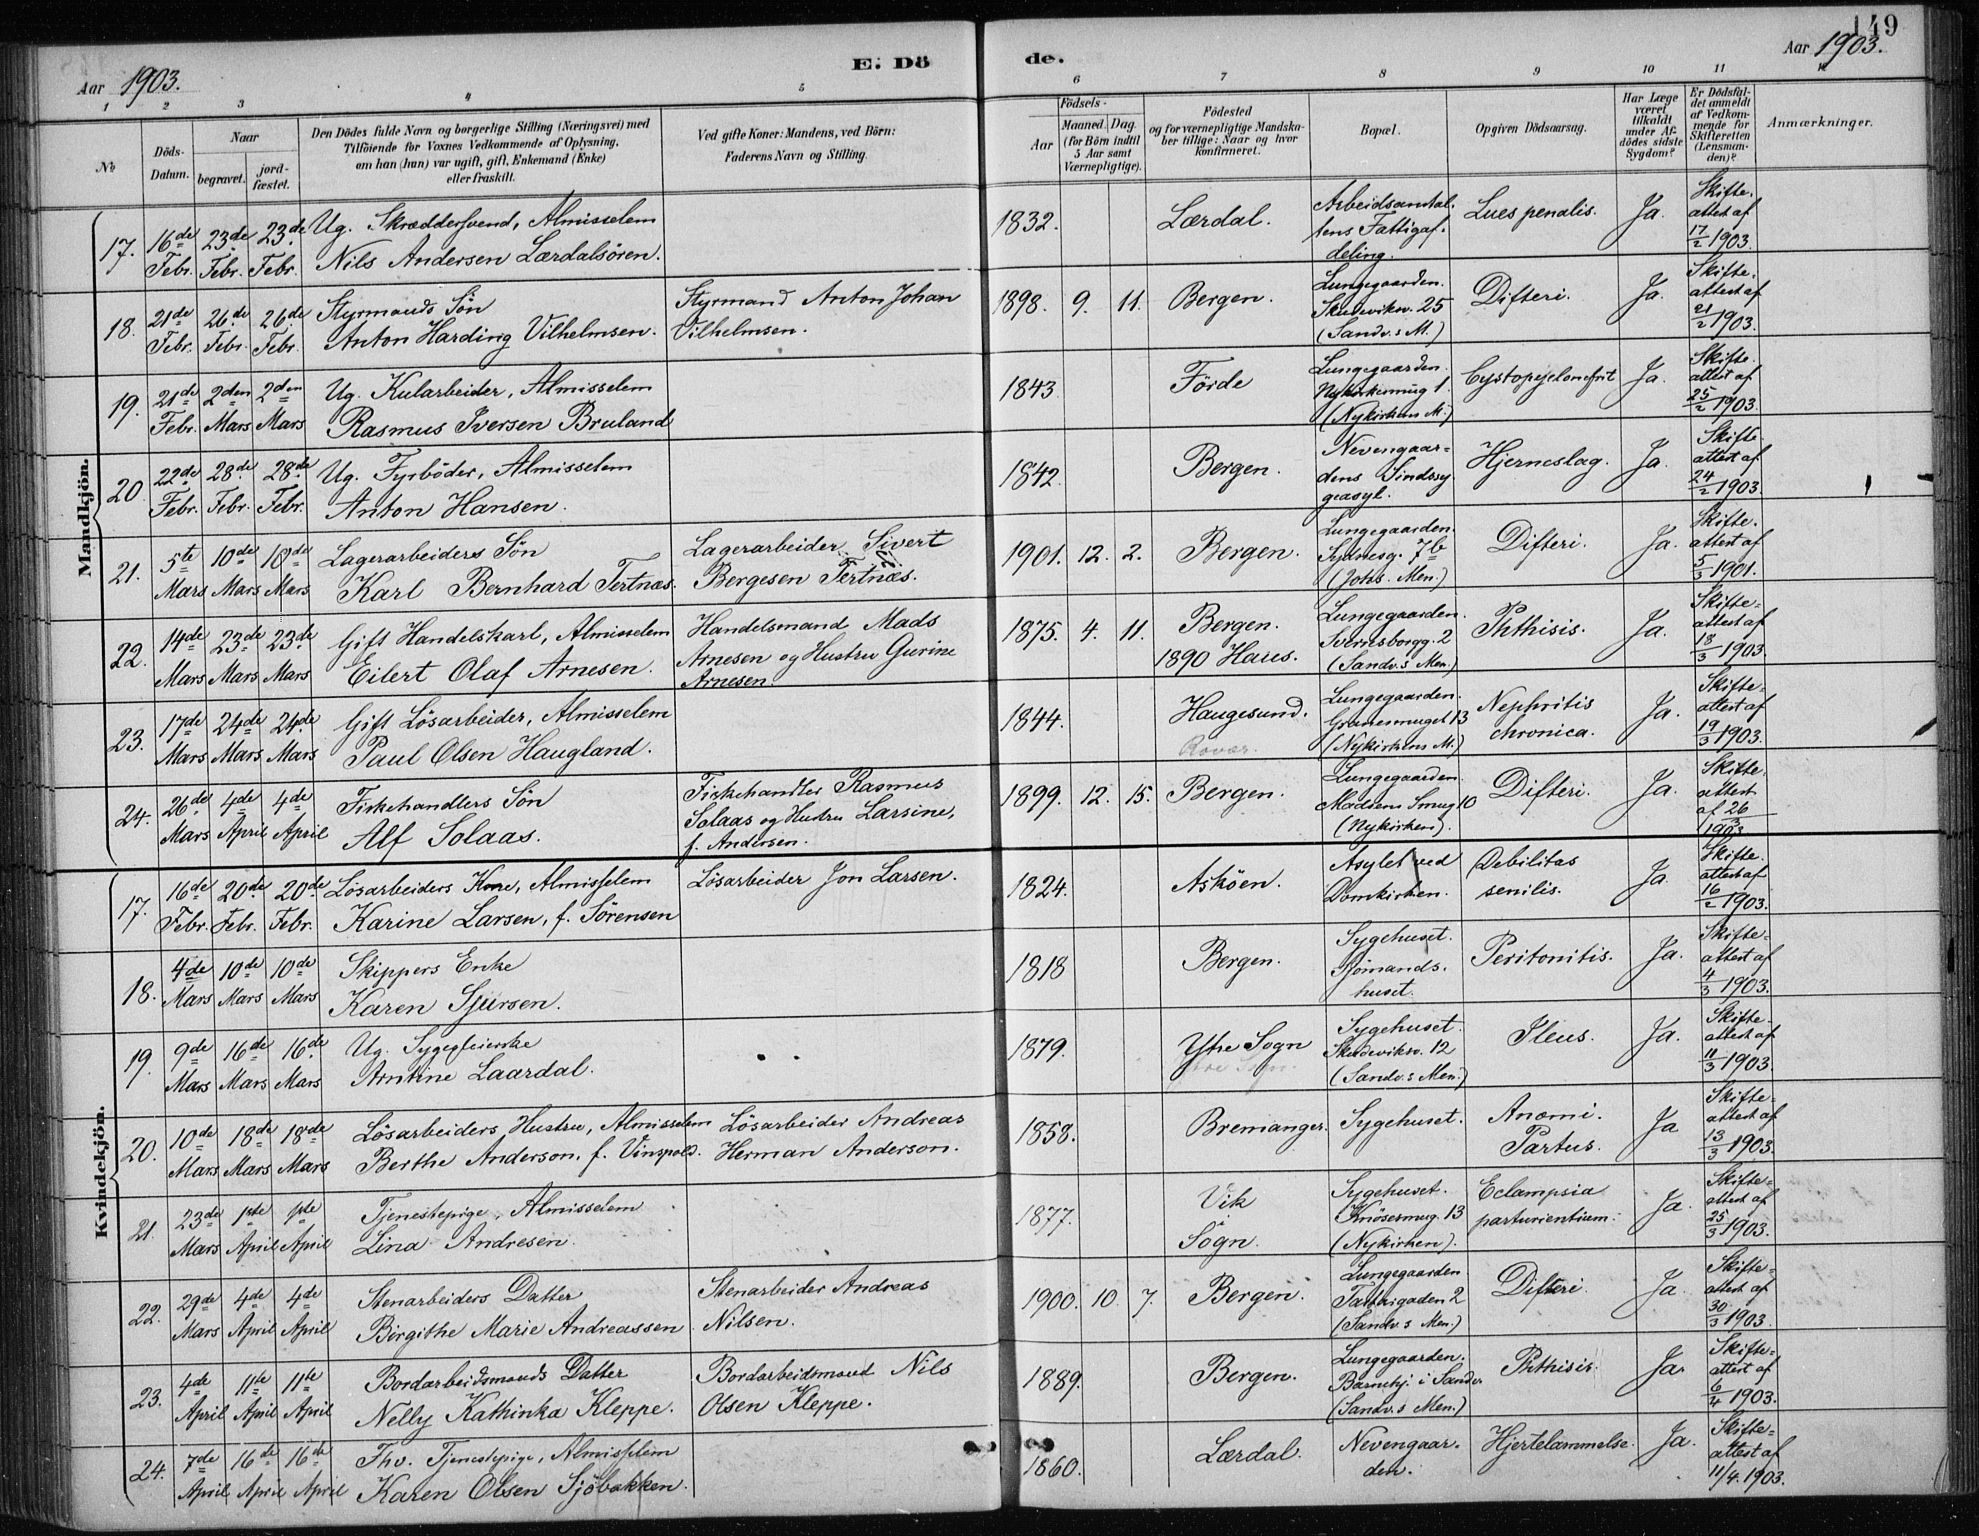 149
Aar 1903.
E. Dö
de.
Aar 1903.
1 2 3 4 5 6 7 8 9 10 11 12
No
Döds-Datum.
Naar
begravet.
jord-fæstet.
Den Dödes fulde Navn og borgerlige Stilling (Næringsvei) med
Tilföiende for Voxnes Vedkommende af Oplysning,
om han (hun) var ugift, gift, Enkemand (Enke)
eller fraskilt.
Ved gifte Koner: Mandens, ved Börn:
Faderens Navn og Stilling.
Födsels-
Aar
Maaned. Dag.
(for Börn indtil
5 Aar samt
Værnepligtige).
Födested
og for værnepligtige Mandska-
ber tillige: Naar og hvor
konfirmeret.
Bopæl.
Opgiven Dödsaarsag.
Har Læge
været
tilkaldt
under Af-
dödes sidste
Sygdom?
Er Dödsfal-
det anmeldt
af Vedkom-
mende for
Skifteretten
(Lensman-
den)?
Anmærkninger.
Mandkjön.
17. 16de Febr. 23de Febr. 23de Febr.
Ug. Skræddersvend, Almisselem
Nils Andersen Lærdalsören.
1832. Lærdal.
Arbeidsanstal-
tens Fattigaf-
deling.
Lues penalis. Ja.
Skifte-
attest af
17/2 1903.
18. 21de Febr. 26de Febr. 26de Febr.
Styrmands Sön
Anton Harding Vilhelmsen.
Styrmand Anton Johan
Vilhelmsen.
1898. 9. 11. Bergen.
Lungegaarden.
Skudevikv. 25
(Sandv.s M.)
Difteri. Ja.
Skifte-
attest af
21/2 1903.
19. 21de Febr. 2den Mars 2den Mars
Ug. Kularbeider, Almisselem
Rasmus Iversen Bruland
1843. Förde
Lungegaarden.
Nykirkesmug 1
(Nykirkens M.)
Cystopyelonefrit Ja.
Skifte-
attest af
25/2 1903.
20. 22de Febr. 28de Febr. 28de Febr.
Ug. Fyrböder, Almisselem
Anton Hansen.
1842. Bergen.
Nevengaar-
dens Sindssy
geasyl.
Hjerneslag. Ja.
Skifte
attest af
24/2 1903.
21. 5te Mars 10de Mars 10de Mars
Lagerarbeiders Sön
Karl Bernhard Tertnæs.
Lagerarbeider Sivert
Bergesen Tertnæs.
1901. 12. 2. Bergen.
Lungegaarden.
Sydnesg. 7b
(Johs. Men.)
Difteri. Ja.
Skifte-
attest af
5/3 1901.
22. 14de Mars 23de Mars 23de Mars
Gift Handelskarl, Almisselem
Eilert Olaf Arnesen.
Handelsmand Mads
Arnesen og Hustru Gurine
Arnesen.
1875. 4. 11. Bergen.
1890 Haus.
Lungegaarden.
Sverresborgg. 2
(Sandv.s Men.)
Phthisis. Ja.
Skifte-
attest af
18/3 1903.
23. 17de Mars 24de Mars 24de Mars
Gift Lösarbeider, Almisselem
Paul Olsen Haugland.
1844. Haugesund.
Rovær.
Lungegaarden.
13
(Nykirkens M.)
Nephritis
chronica. Ja.
Skifte-
attest af
19/3 1903.
24. 26de Mars 4de April 4de April
Fiskehandlers Sön
Alf Solaas.
Fiskehandler Rasmus
Solaas og Hustru Larsine,
f. Andersen.
1899. 12. 15. Bergen.
Lungegaarden.
Madsens Smug 10
(Nykirken).
Difteri. Ja.
Skifte-
attest
af 26/3
1903
Kvindekjön.
17. 16de Febr. 20de Febr. 20de Febr.
Lösarbeiders Kone, Almisselem
Karine Larsen, f. Sörensen
Lösarbeider Jon Larsen.
1824. Asköen.
Asylet ved
Domkirken.
Debilitas
senilis. Ja.
Skifte-
attest af
16/2 1903.
18. 4de Mars 10de Mars 10de Mars
Skippers Enke
Karen Sjursen.
1818 Bergen.
Sygehuset.
Sjömands-
huset.
Peritonitis. Ja.
Skifte-
attest af
4/3 1903.
19. 9de Mars 16de Mars 16de Mars
Ug. Sygepleierske
Arntine Laardal.
1879. Ytre Sogn
Sygehuset.
Skudeviksv. 12
(Sandv.s Men.)
Ileus. Ja.
Skifte-
attest af
11/3 1903.
20. 10de Mars 18de Mars 18de Mars
Lösarbeiders Hustru, Almisselem
Berthe Anderson, f. Vinspold.
Lösarbeider Andreas
Herman Anderson.
1858. Bremanger. Sygehuset.
Anæmi.
Partus. Ja
Skifte-
attest af
13/3 1903.
21. 23de Mars 1ste April 1ste April
Tjenestepige, Almisselem
Lina Andresen.
1877. Vik
i
Sogn.
Sygehuset.
Knösesmug. 13
(Nykirken).
Eclampsia
parturientium. Ja.
Skifte-
attest af
25/3 1903.
22. 29de Mars 4de April 4de April
Stenarbeiders Datter
Birgithe Marie Andreassen
Stenarbeider Andreas
Nilsen.
1900. 10. 7. Bergen.
Lungegaarden
2
(Sandv.s Men.)
Difteri. Ja.
Skifte-
attest af
30/3 1903.
23. 4de April 11te April 11te April
Bordarbeidsmands Datter
Nelly Kathinka Kleppe.
Bordarbeidsmand Nils
Olsen Kleppe.
1889. Bergen.
Lungegaarden.
Barnehj. i Sandv.
(Sandv.s Men.)
Phthisis. Ja.
Skifte-
attest af
6/4 1903.
24. 7de April 16de April 16de April
Fhv. Tjenestepige, Almisselem
Karen Olsen Sjöbakken.
1860. Lærdal.
Nevengaar-
den.
Hjertelammelse. Ja.
Skifte-
attest af
11/4. 1903.